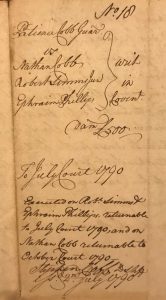 No 18
Patience Cobb Guard
vs
Nathan Cobb
Robert Simms Junr
Ephraim Phillips
writ
in
Covent
dam £500
To July Court 1790
Executed on Rt Simms &
Ephraim Phillips returnable
to July Court 1790, and on
Nathan Cobb returnable to
October Court 1790
Stephen Cobb D Shff
July 1790